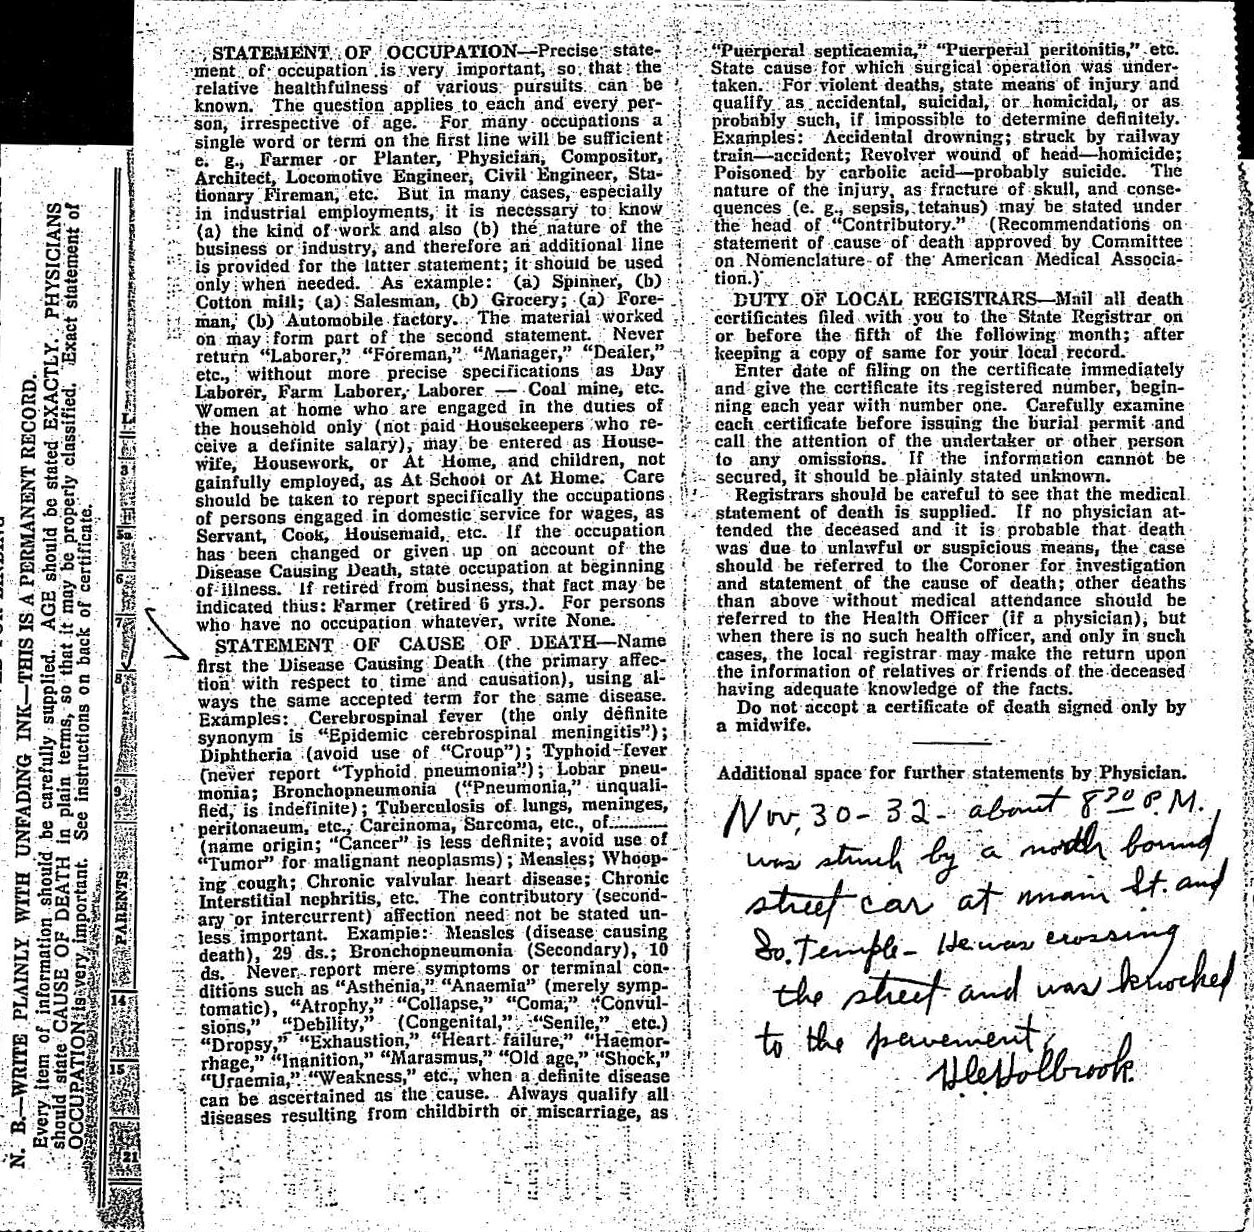 STATEMENT OF OCCUPATION—Precise state-
ment of occupation is very important, so that the
relative healthfulness of various pursuits can be
known. The question applies to each and every per-
son, irrespective of age. For many occupations a
single word or term on the first line will be sufficient
e. g., Farmer or Planter, Physician, Compositor,
Architect, Locomotive Engineer, Civil Engineer, Sta-
tionary Fireman, etc. But in many cases, especially
in industrial employments, it is necessary to know
(a) the kind of work and also (b) the nature of the
business or industry, and therefore an additional line
is provided for the latter statement; it should be used
only when needed. As example: (a) Spinner, (b)
Cotton mill; (a) Salesman, (b) Grocery; (a) Fore-
man, (b) Automobile factory. The material worked
on may form part of the second statement. Never
return "Laborer," "Foreman," "Manager," "Dealer,"
etc., without more precise specifications as Day
Laborer, Farm Laborer, Laborer — Coal mine, etc.
Women at home who are engaged in the duties of
the household only (not paid Housekeepers who re-
ceive a definite salary), may be entered as House-
wife, Housework, or At Home, and children, not
gainfully employed, as At School or At Home. Care
should be taken to report specifically the occupations
of persons engaged in domestic service for wages, as
Servant, Cook, Housemaid, etc. If the occupation
has been changed or given up on account of the
Disease Causing Death, state occupation at beginning
of illness. If retired from business, that fact may be
indicated thus: Farmer (retired 6 yrs.). For persons
who have no occupation whatever, write None.
STATEMENT OF CAUSE OF DEATH—Name
first the Disease Causing Death (the primary affec-
tion with respect to time and causation), using al-
ways the same accepted term for the same disease.
Examples: Cerebrospinal fever (the only definite
synonym is "Epidemic cerebrospinal meningitis");
Diphtheria (avoid use of "Croup"); Typhoid fever
(never report "Typhoid pneumonia"); Lobar pneu-
monia; Bronchopneumonia ("Pneumonia," unquali-
fied, is indefinite); Tuberculosis of lungs, meninges,
peritonaeum, etc., Carcinoma, Sarcoma, etc., of............
(name origin; "Cancer" is less definite; avoid use of
"Tumor" for malignant neoplasms); Measles; Whoop-
ing cough; Chronic valvular heart disease; Chronic
Interstitial nephritis, etc. The contributory (second-
ary or intercurrent) affection need not be stated un-
less important. Example: Measles (disease causing
death), 29 ds.; Bronchopneumonia (Secondary), 10
ds. Never report mere symptoms or terminal con-
ditions such as "Asthenia," "Anaemia" (merely symp-
tomatic), "Atrophy," "Collapse," "Coma," "Convul-
sions," "Debility," (Congenital," "Senile," etc.)
"Dropsy," "Exhaustion," "Heart failure," "Haemor-
rhage," "Inanition," "Marasmus," "Old age," "Shock,"
"Uraemia," "Weakness," etc., when a definite disease
can be ascertained as the cause. Always qualify all
diseases resulting from childbirth or miscarriage, as
"Puerperal septicaemia," "Puerperal peritonitis," etc.
State cause for which surgical operation was under-
taken. For violent deaths, state means of injury and
qualify as accidental, suicidal, or homicidal, or as
probably such, if impossible to determine definitely.
Examples: Accidental drowning; struck by railway
train—accident; Revolver wound of head—homicide;
Poisoned by carbolic acid—probably suicide. The
nature of the injury, as fracture of skull, and conse-
quences (e. g., sepsis, tetanus) may be stated under
the head of "Contributory." (Recommendations on
statement of cause of death approved by Committee
on Nomenclature of the American Medical Associa-
tion.)
DUTY OF LOCAL REGISTRARS—Mail all death
certificates filed with you to the State Registrar on
or before the fifth of the following month; after
keeping a copy of same for your local record.
Enter date of filing on the certificate immediately
and give the certificate its registered number, begin-
ning each year with number one. Carefully examine
each certificate before issuing the burial permit and
call the attention of the undertaker or other person
to any omissions. If the information cannot be
secured, it should be plainly stated unknown.
Registrars should be careful to see that the medical
statement of death is supplied. If no physician at-
tended the deceased and it is probable that death
was due to unlawful or suspicious means, the case
should be referred to the Coroner for investigation
and statement of the cause of death; other deaths
than above without medical attendance should be
referred to the Health Officer (if a physician), but
when there is no such health officer, and only in such
cases, the local registrar may make the return upon
the information of relatives or friends of the deceased
having adequate knowledge of the facts.
Do not accept a certificate of death signed only by
a midwife.
Additional space for further statements by Physician.
Nov, 30 - 32 - about 8 30 P.M.
was struck by a north bound
street car at Main St. and
So. Temple - He was crossing
the street and was knocked
to the pavement.
Holbrook
N. B.—WRITE PLAINLY WITH UNFADING INK—THIS IS A PERMANENT RECORD.
Every item of information should be carefully supplied. AGE should be stated EXACTLY. PHYSICIANS
should state CAUSE OF DEATH in plain terms, so that it may be properly classified. Exact statement of
OCCUPATION is very important. See instructions on back of certificate.
1
3
5a
6
7
8
9
PARENTS
14
15
21